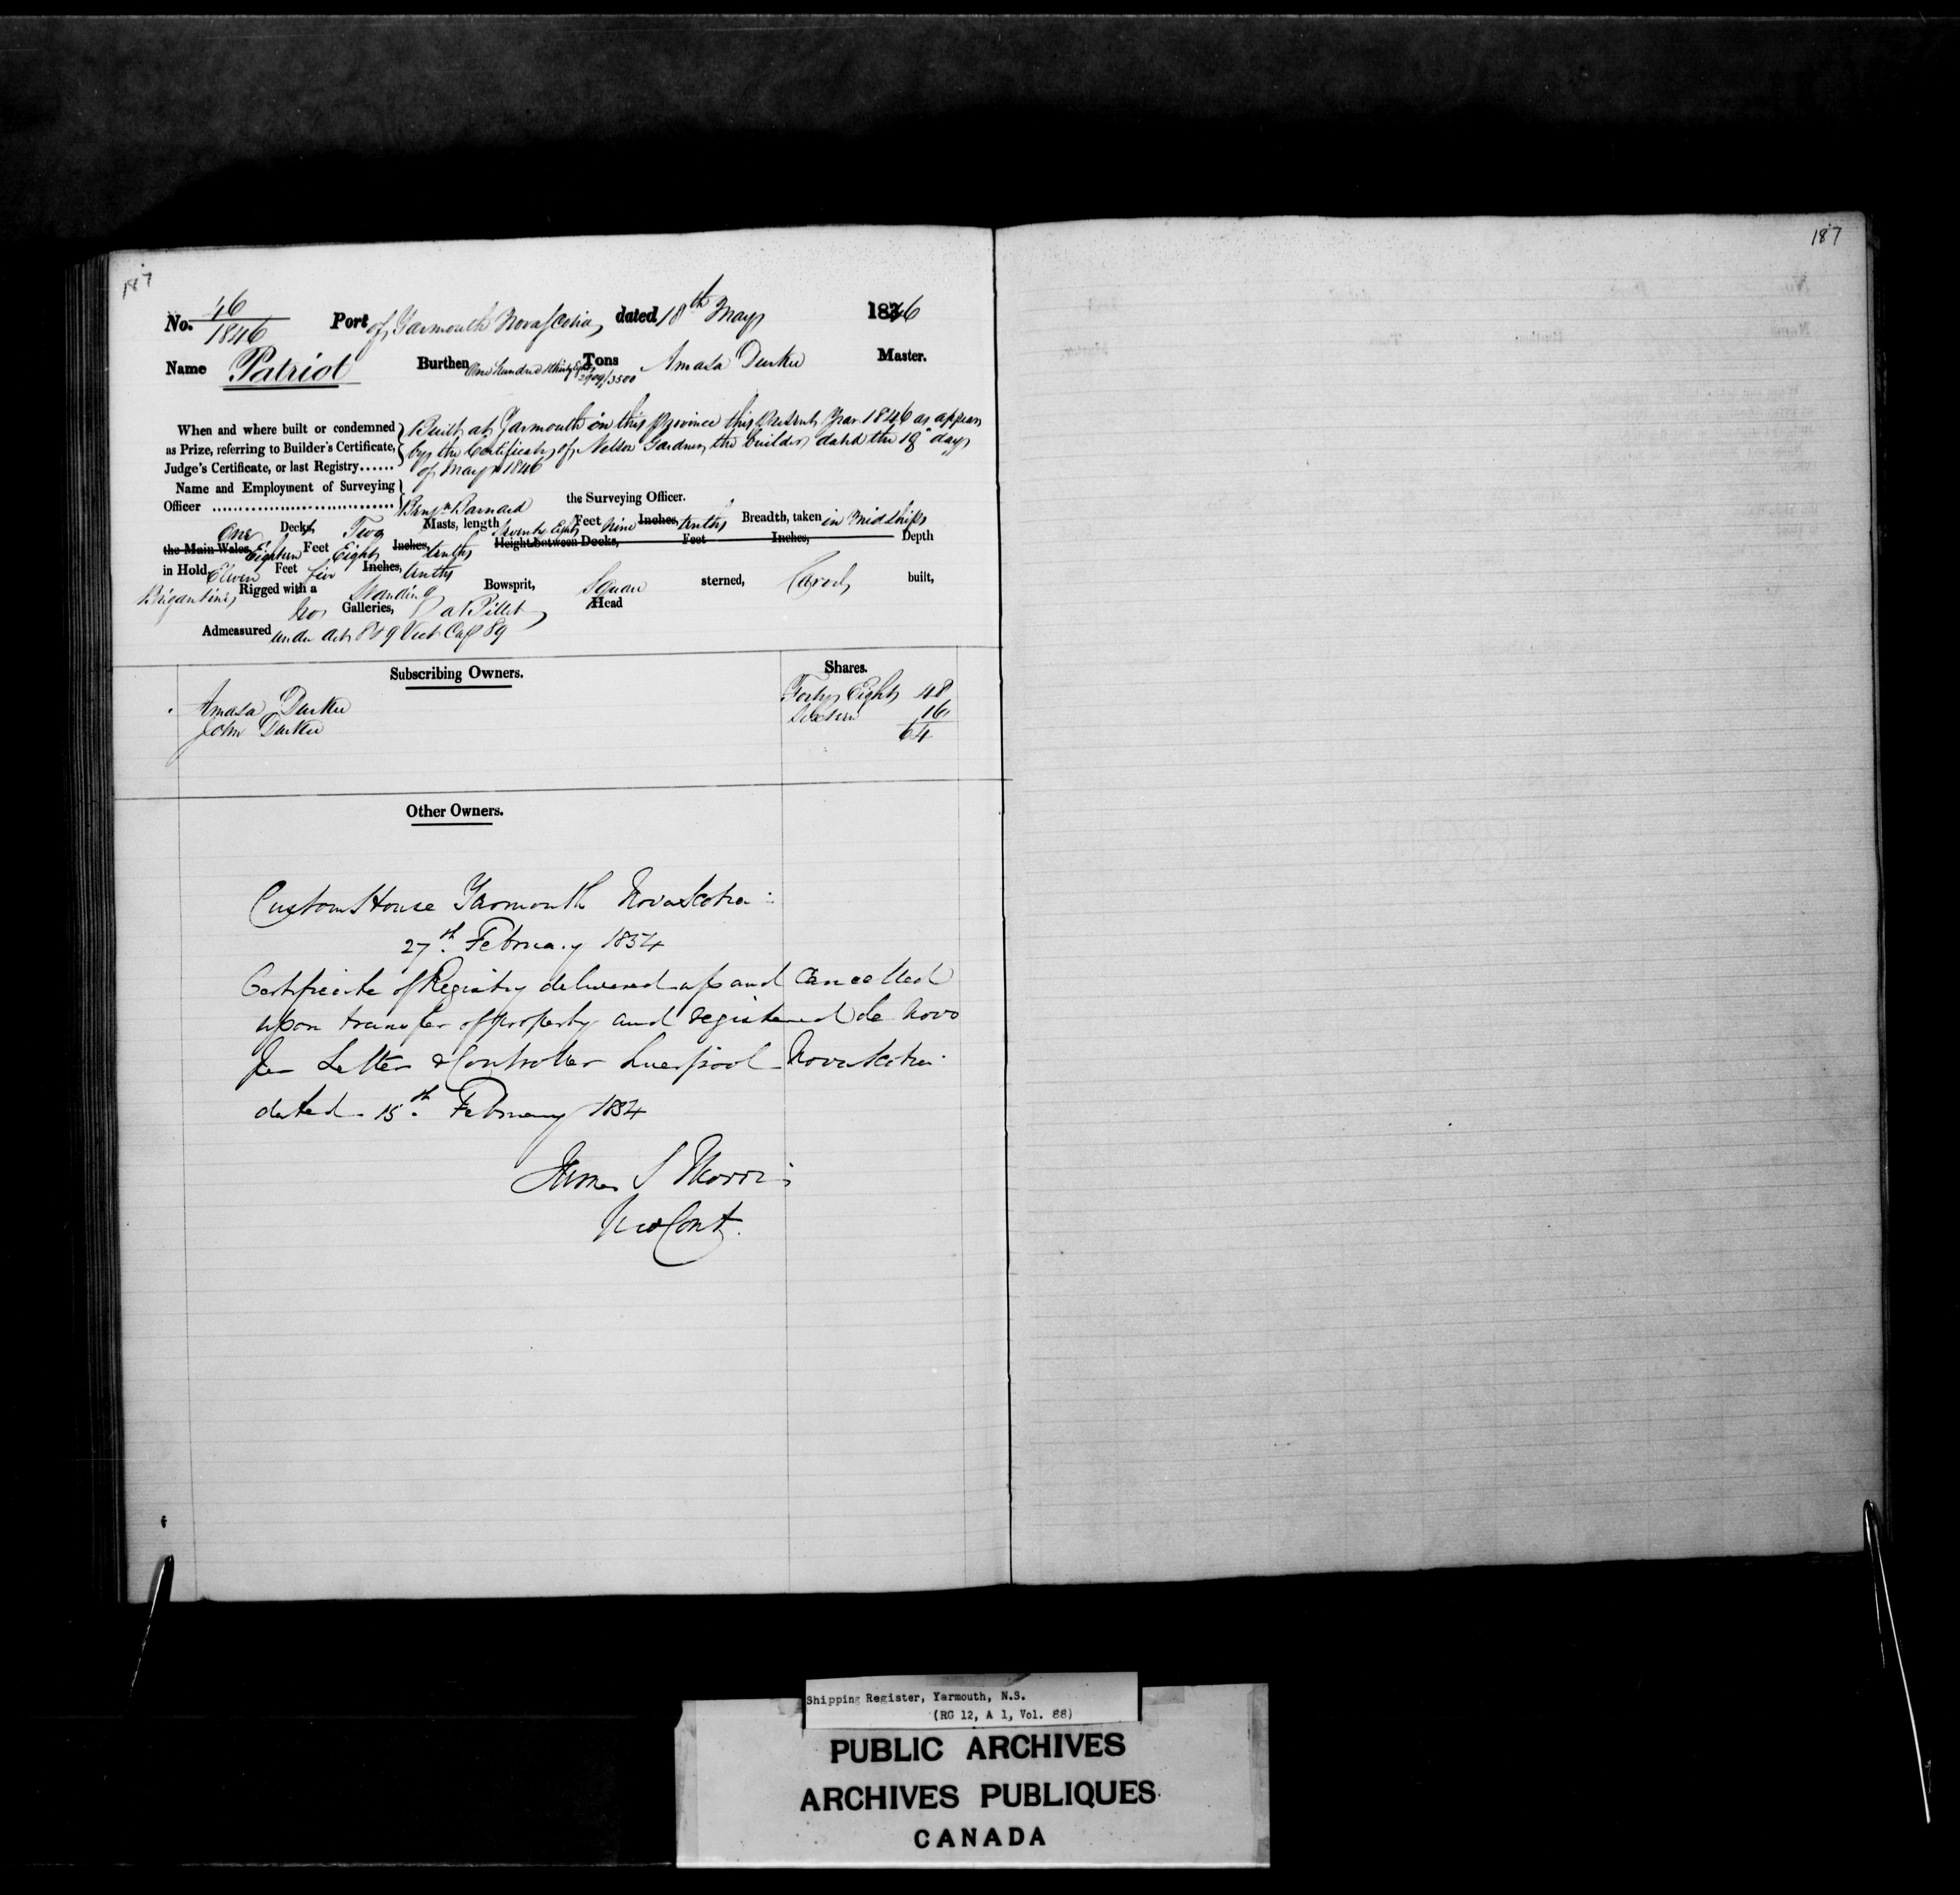 187
187
No. 46/1846 Port of Yarmouth Nova Scotia dated 18th May 1846
Name Patriot Burthen One hundred & thirty Eight 2909/3500 Tons Amasa Durkee Master.
When and where built or condemned Built at Yarmouth in this Province this present Year 1846 as appears
as Prize, referring to Builder's Certificate, by the Certificate of Nelson Gardner the builder dated the 18" day
Judge's Certificate, or last Registry...... of May 1846
Name and Employment of Surveying
Officer .................................... Benjn Barnard the Surveying Officer.
One Decks, Two Masts, length Seventy Eight Feet Nine Inches, tenths Breadth, taken in Midships
the Main Wales, Eighteen Feet Eight Inches, tenths Height between Decks, Feet Inches, Depth
in Hold Eleven Feet five Inches, tenths
Brigantine Rigged with a Standing Bowsprit, Square sterned, Carvel built,
No Galleries, a Billet Head
Admeasured under Act 8 & 9 Vict Cap 89
Subscribing Owners. Shares.
Amasa Durkee Forty Eight 48
John Durkee Sixteen 16
64
Other Owners.
Customs House Yarmouth Nova Scotia
27th February 1854
Certificate of Registry delivered up and cancelled
upon transfer of property and registered de Novo
per Letter Controller Liverpool Nova Scotia
dated 15th February 1854
James S Morris
Cont.
Shipping Register, Yarmouth, N.S.
(RG 12, A 1, Vol. 88)
PUBLIC ARCHIVES
ARCHIVES PUBLIQUES
CANADA